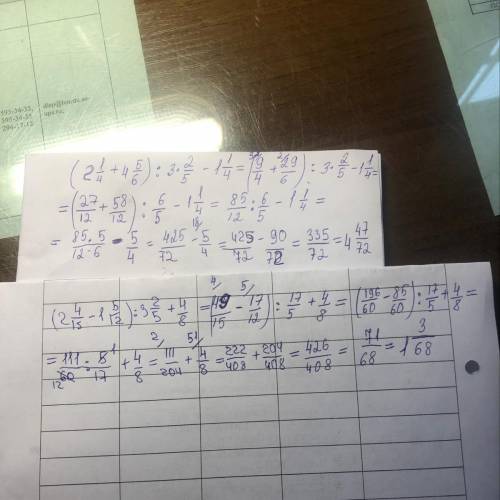 595-34-33,
595-34-35
294-17-12
(2 1/4 + 4 5/6) : 3 · 2/5 - 1 1/4 = (9/4 + 29/6) : 3 · 2/5 - 1 1/4 =
= (27/12 + 58/12) : 6/5 - 1 1/4 = 85/12 : 6/5 - 1 1/4 =
= 85·5/12·6 - 5/4 = 425/72 - 5/4 = 425/72 - 90/72 = 335/72 = 4 47/72
(2 4/15 - 1 5/12) : 3 2/5 + 4/8 = (49/15 - 17/12) : 17/5 + 4/8 = (196/60 - 85/60) : 17/5 + 4/8 =
= 111 · 5/60 · 17 + 4/8 = 111/204 + 4/8 = 222/408 + 204/408 = 426/408 = 71/68 = 1 3/68